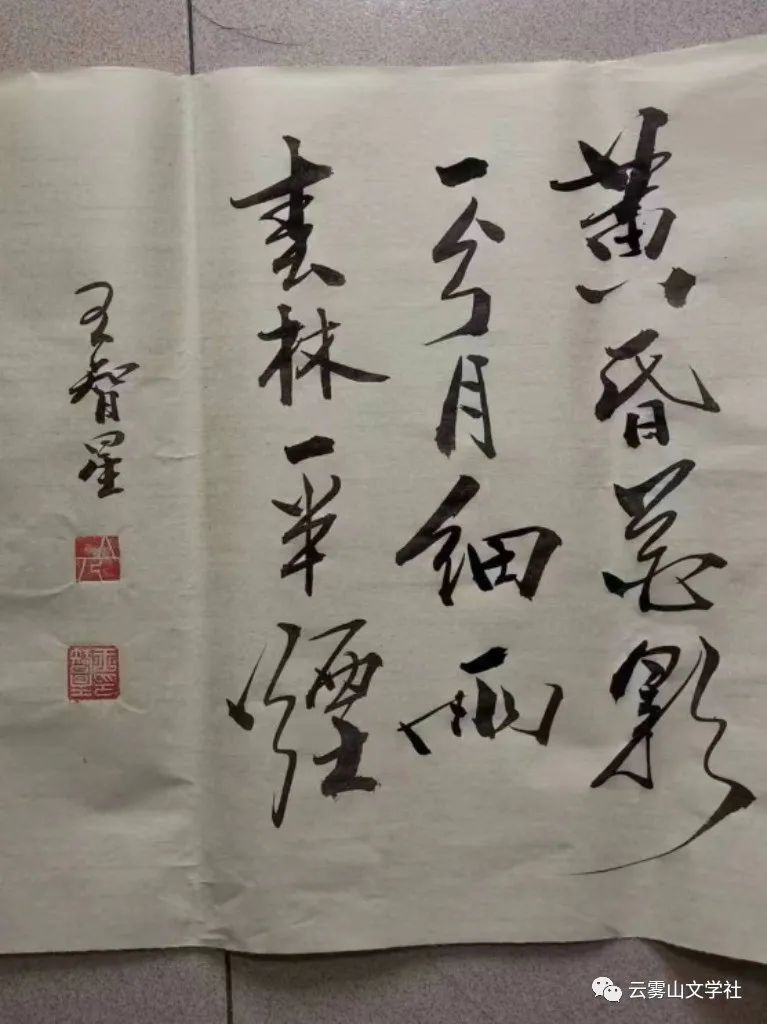 黄昏花影
一分月細雨
春林一半煙
王智星
云雾山文学社